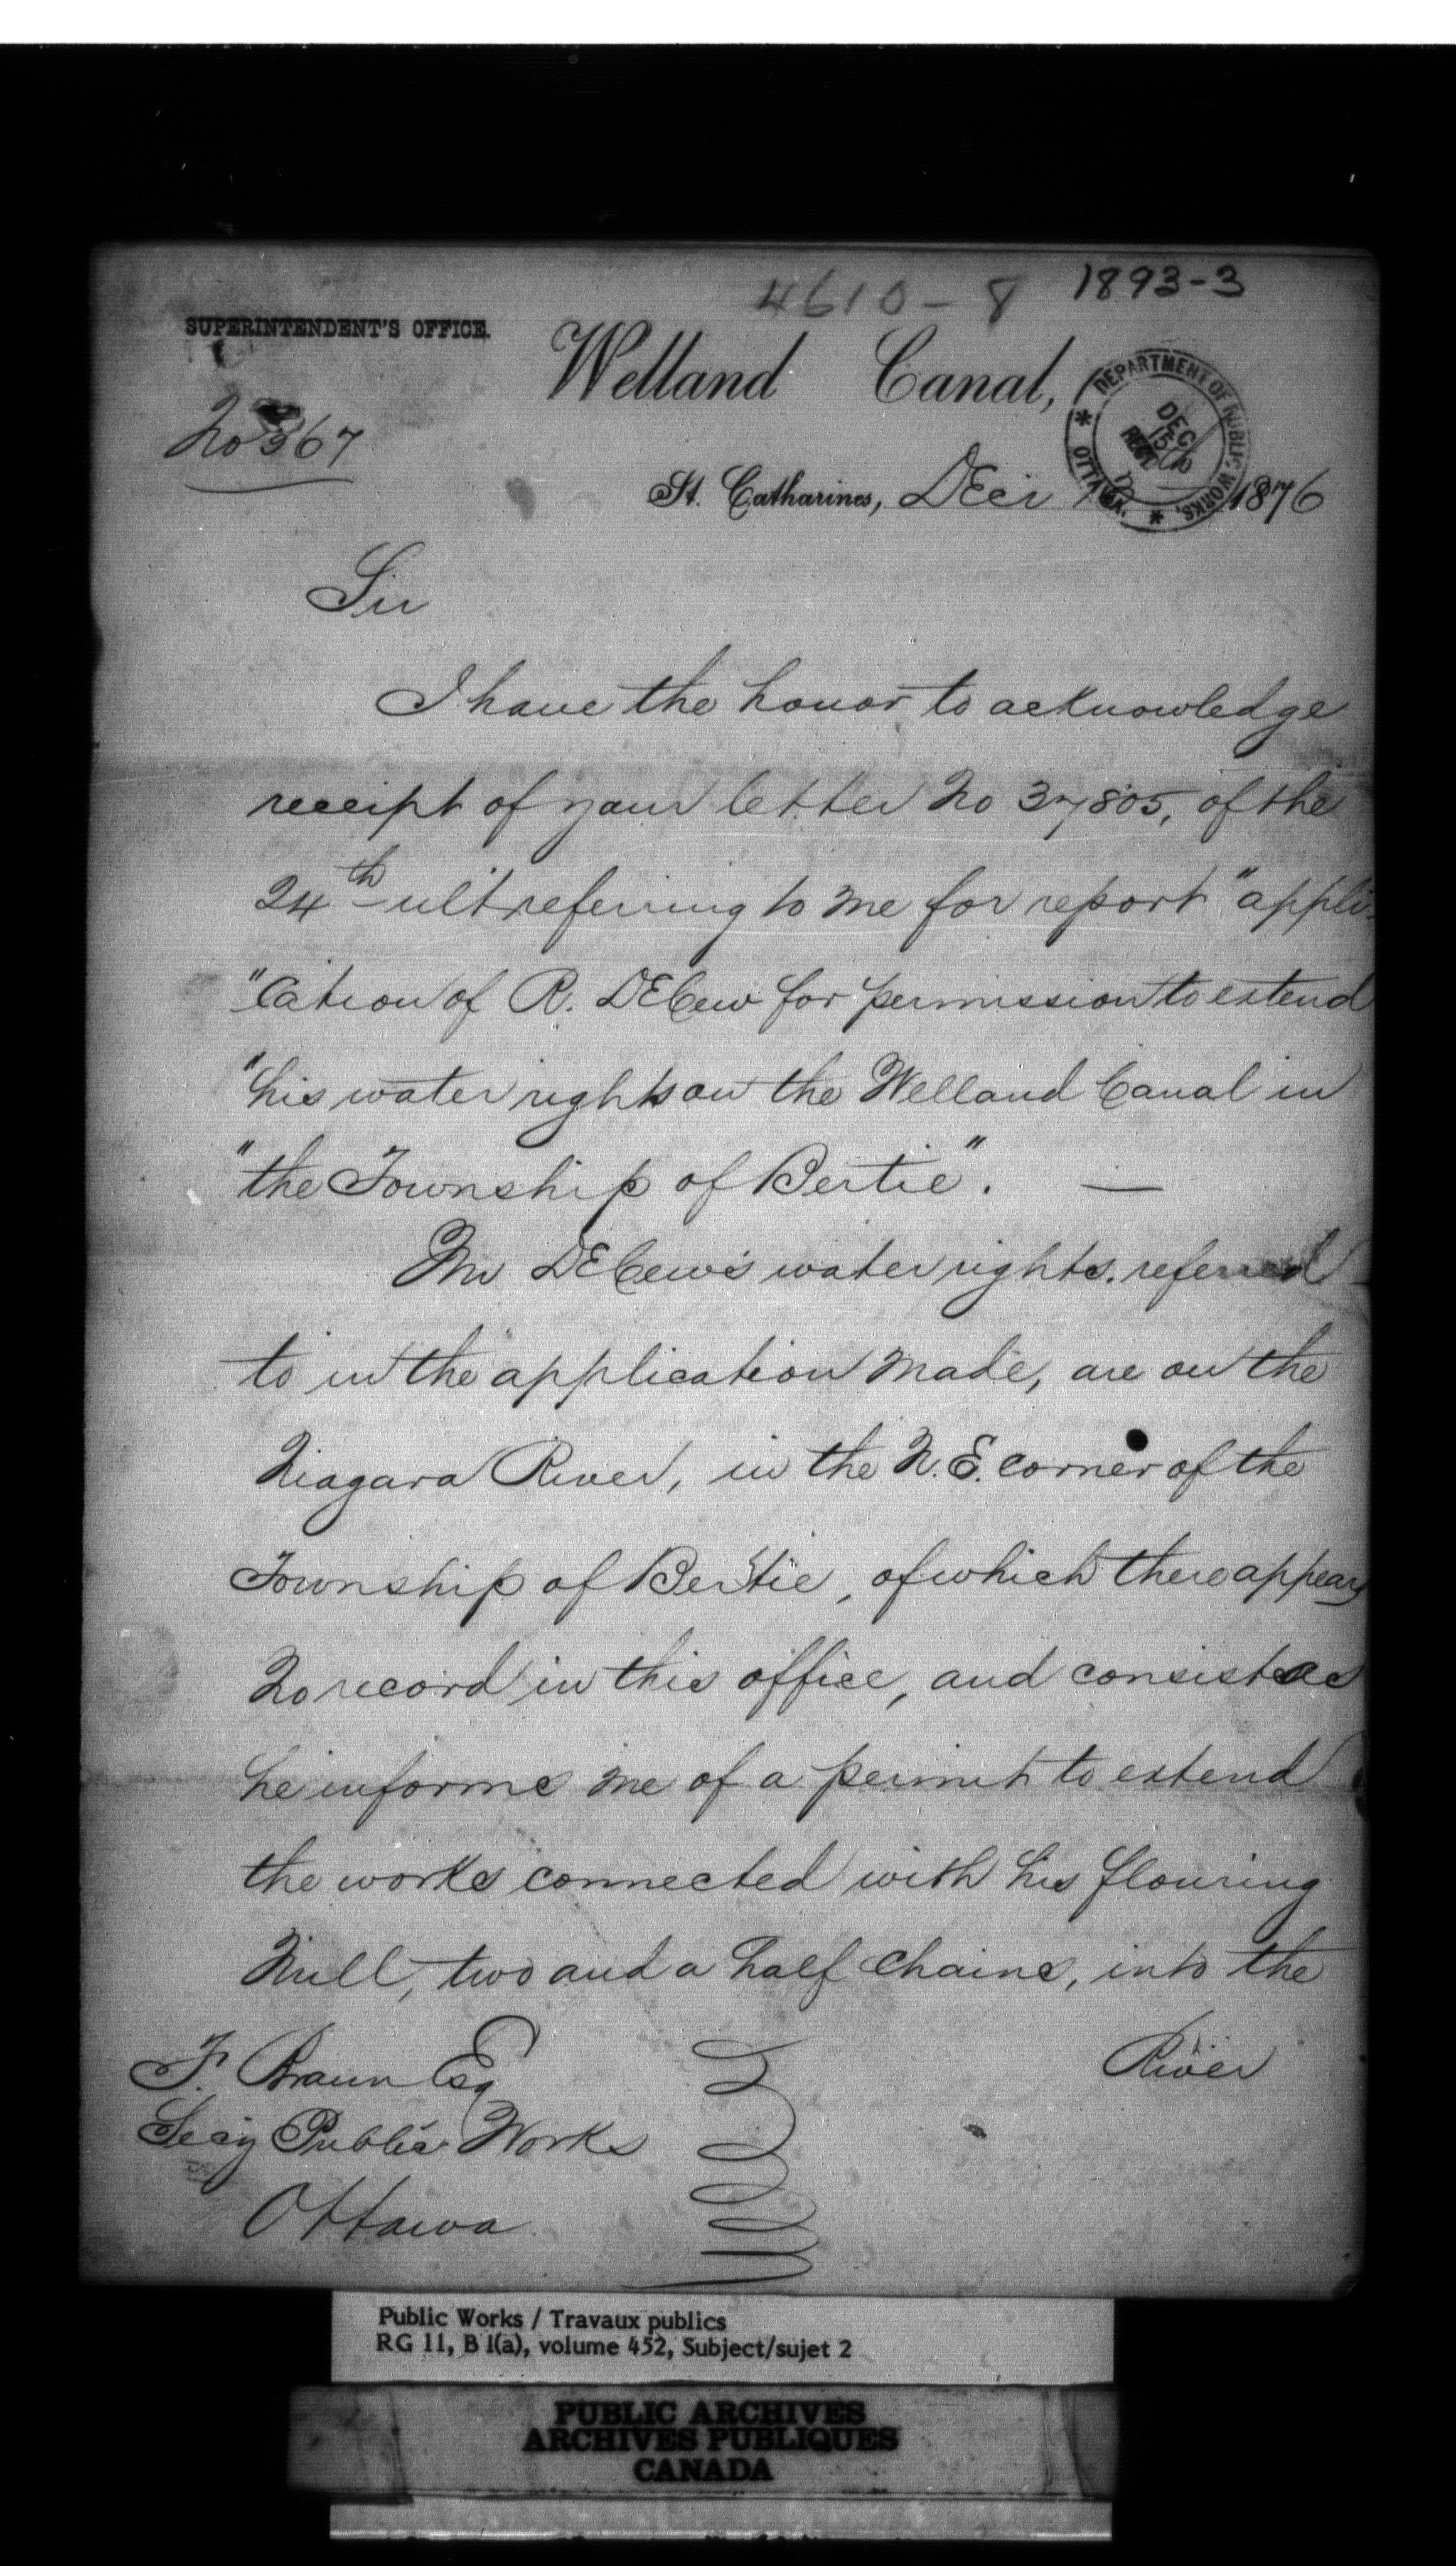 4610-8 1893-3
SUPERINTENDENT'S OFFICE.
Welland Canal,
No 367
DEPARTMENT OF PUBLIC WORKS, OTTAWA.
DEC 15
REC'D
St. Catharines, DEcr 1876
Sir
I have the honor to acknowledge
receipt of your letter No 37805, of the
24th ult referring to me for report "appli-
"cation of R. DECew for permission to extend
"his water rights on the Welland Canal in
"the Township of Bertie". —
Mr DECew's water rights. referred
to in the application made, are on the
Niagara River, in the N.E. corner of the
Township of Bertie, of which there appears
No record in this office, and consists as
he informs me of a permit to extend
the works connected with his flouring
Mill, two and a half chains, into the
River
F. Braun Esq
Secy Public Works
Ottawa
Public Works / Travaux publics
RG 11, B 1(a), volume 452, Subject/sujet 2
PUBLIC ARCHIVES
ARCHIVES PUBLIQUES
CANADA